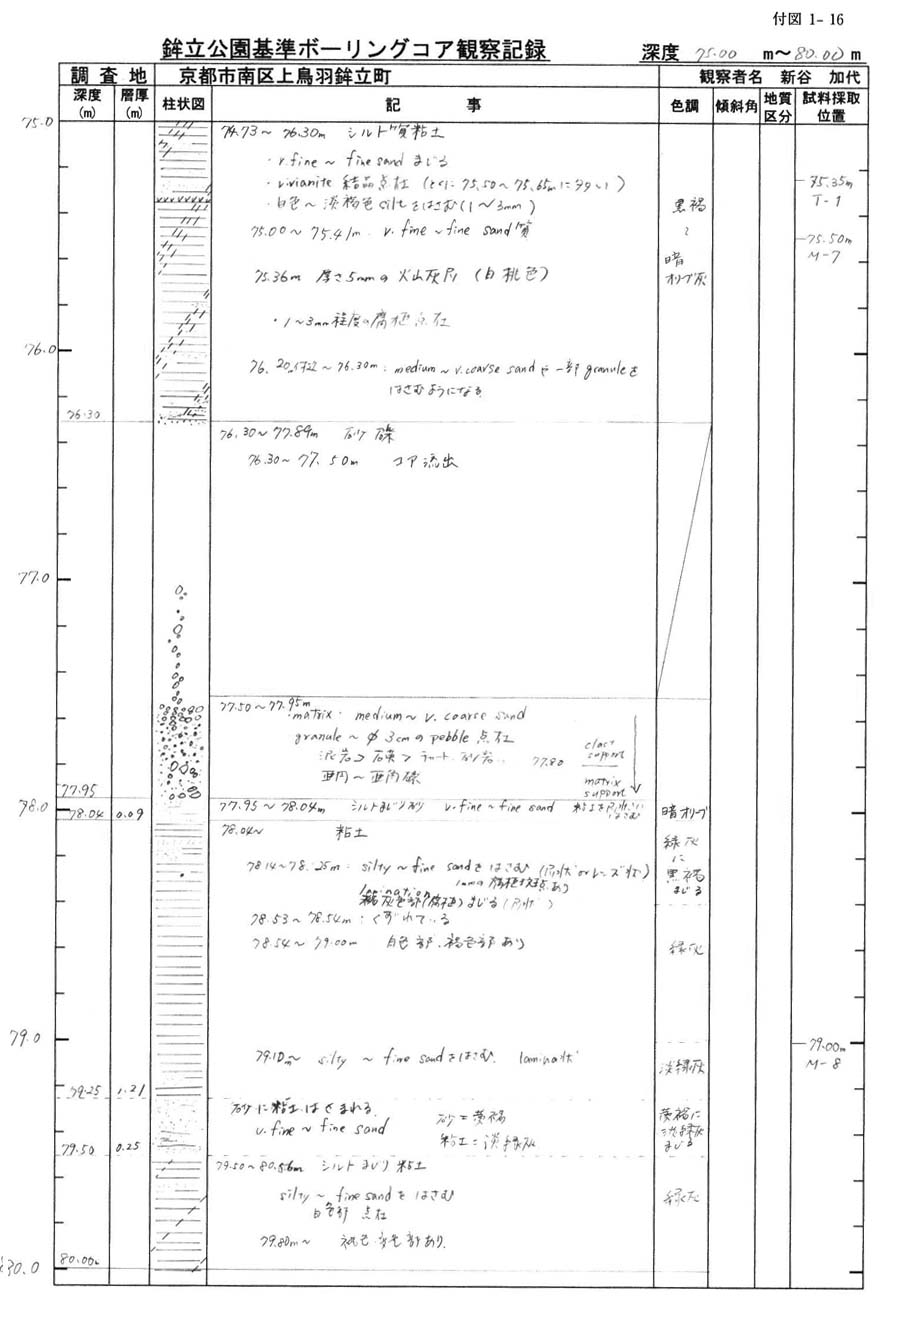 付図 1- 16
鉾立公園基準ボーリングコア観察記録 深度 75.00 m～80.00 m
調査地 京都市南区上鳥羽鉾立町 観察者名 新谷 加代
深度(m) 層厚(m) 柱状図 記事 色調 傾斜角 地質区分 試料採取位置
75.0
74.73～76.30m シルト質粘土
・v.fine～fine sand まじる
・vivianite 結晶点在 (とくに 75.50～75.65mに多い)
・白色～淡褐色 siltをはさむ(1～3mm)
75.00～75.41m. v. fine～fine sand 質
75.36m 厚さ5mmの火山灰層 (白桃色)
・1～3mm程度の腐植点在
黒褐
～
暗
オリーブ灰
75.35m
T-1
75.50m
M-7
76.0
76.20付近～76.30m: medium～v.coarse sand や一部 granuleを
はさむようになる
76.30
76.30～77.89m 砂礫
76.30～77.50m コア流出
77.0
77.50～77.95m
・matrix・ medium～v. coarse sand
granule～φ3cmの pebble 点在
泥岩＞石英＞チャート・砂岩
亜円～亜角礫
77.80
clast support
matrix support
77.95
78.0
77.95～78.04m シルトまじり v.fine～fine sand 粘土を
はさむ
暗オリーブ
78.04 0.09
78.04～ 粘土
緑灰
に
黒褐
まじる
78.14～78.25m: silty～fine sandをはさむ (層状 or レンズ状)
1mmの腐植 点あり
lamination
まじる
78.53～78.54m: くずれている
78.54～79.00m 白色部、褐色部あり
緑灰
79.0
79.00m
M-8
79.10m～ silty～fine sandをはさむ. lamina状
淡緑灰
79.25 1.21
砂に粘土はさまれる.
v.fine～fine sand
砂=黄褐
粘土=淡緑灰
黄褐に
淡緑灰
まじる
79.50 0.25
79.50～80.56m シルトまじり粘土
silty～fine sandをはさむ
白色部 点在
緑灰
79.80m～ 部あり.
80.00m
80.0